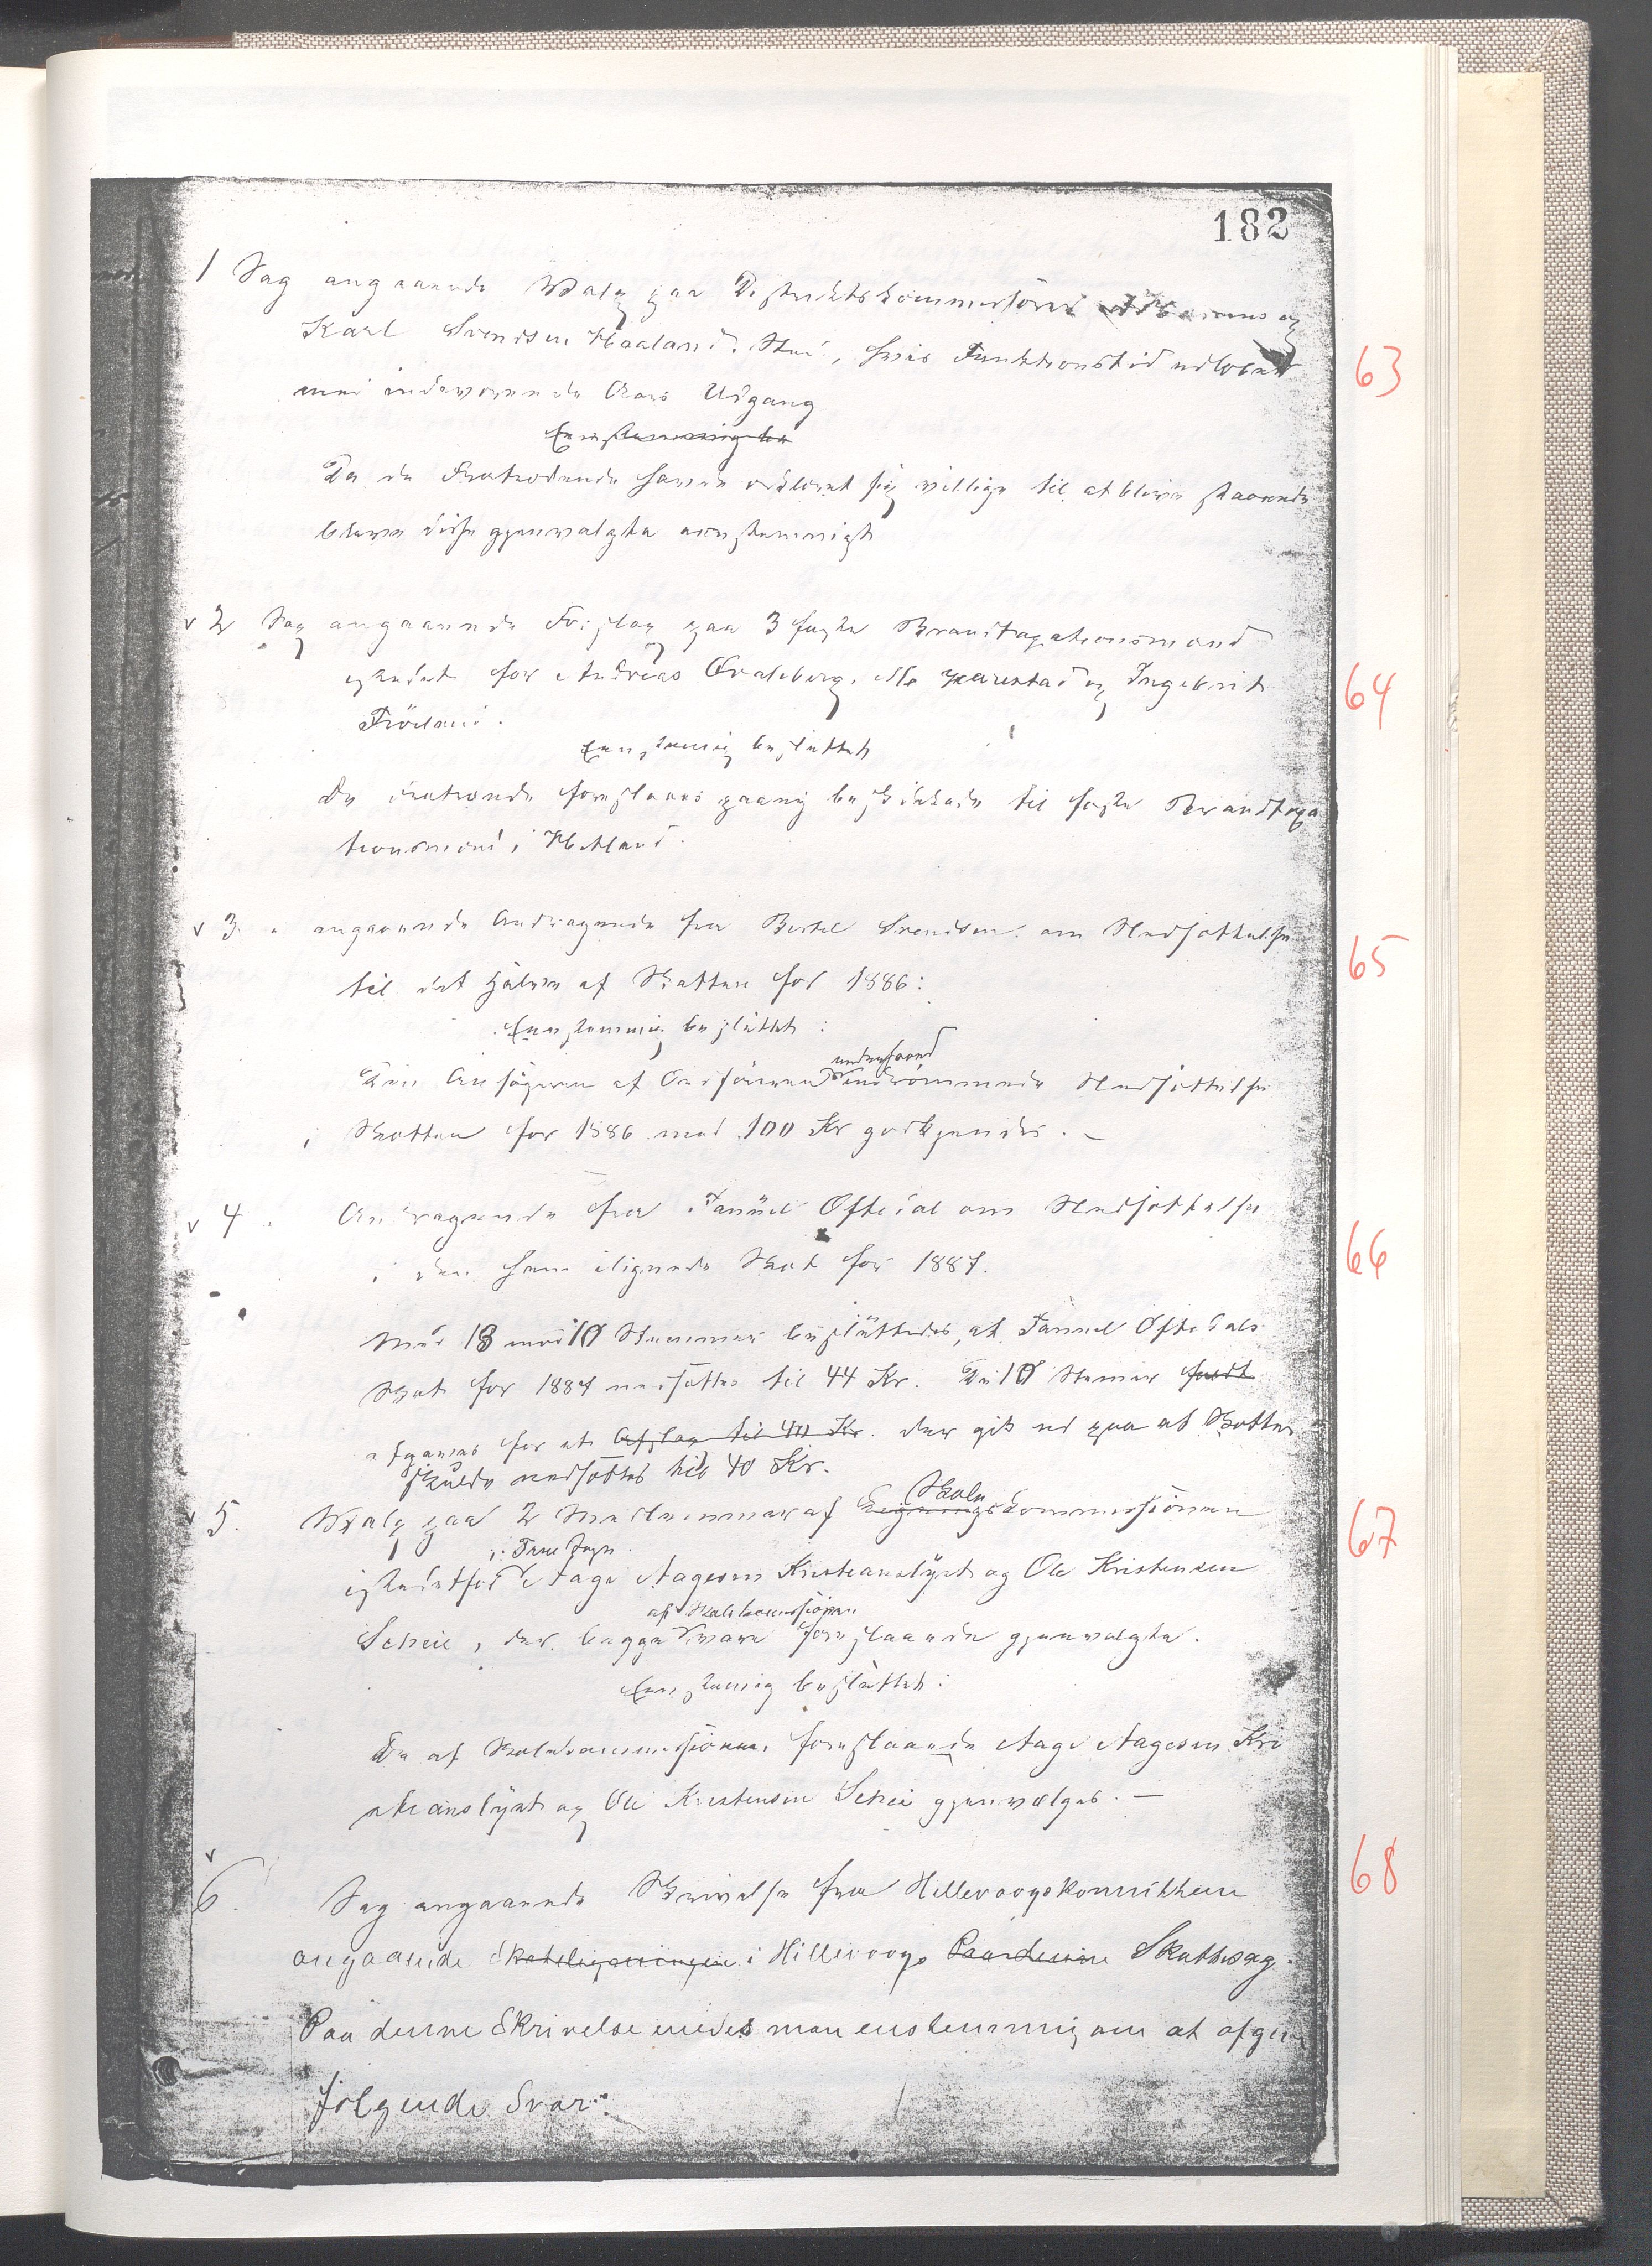 182
1 Sag angaaende Valg paa Distriktskommissærer
Karl Svendsen Haaland. Stur, hvis Funktionstid udløber
med indeværende Aars Udgang
63
Eenstemmig be
De de Fratrædende havde erklæret sig villige til at blive staaende
bleve disse gjenvalgte eenstemmigt
v 2 Sag angaaende Forslag paa 3 faste Brandtaxationsmænd
istedet for Andreas Grakberg, og Ingebrit
64
Frøiland.
Eenstemmig besluttet
De fratrædende foreslaaes paany beskikkede til faste Brandtaxa
tionsmænd i Hetland.
v 3 " angaaende Andragende fra Bertel Svendsen om Nedsættelse
65
til det Halve af Skatten for 1886:
Eenstemmig besluttet:
underhaand
Den Ansøgeren af Ordføreren indrømmede Nedsættelse
i Skatten for 1886 med 100 Kr godkjendes. –
v 4 " Andragende fra Tønnes Oftedal om Nedsættelse
66
i den ham ilignede Skat for 1887.
Med 18 mod 10 Stemmer besluttedes, at Tønnes Oftedals
Skat for 1887 nedsættes til 44 Kr. De 10 Stemmer faldt
afgaves for et Afslag til 40 Kr. der gik ud paa at Skatten
skulde nedsættes til 40 Kr.
Skole
v 5. Valg paa 2 Medlemmer af Lignings kommissionen
67
i Frue Sogn
istedetfor Aage Aagesen Kristianslyst og Ole Kristensen
af Skolekommissionen
Scheie, der begge vare foreslaaede gjenvalgte.
Eenstemmig besluttet:
De af Skolekommissionen foreslaaede Aage Aagesen Kri
stianslyst og Ole Kristensen Scheie gjenvælges. –
v
6. Sag angaaende Skrivelse fra Hillevaagskomitteen
68
angaaende Skatteligningen i Hillevaags Paa denne Skattesag.
Paa denne Skrivelse enedes man enstemmig om at afgive
følgende Svar: